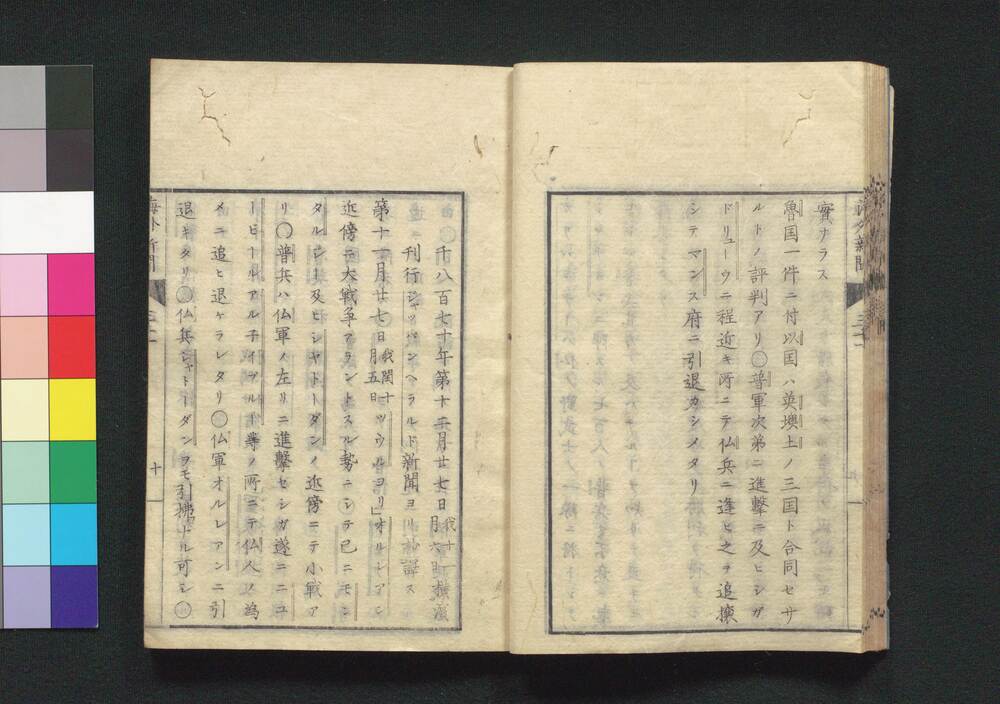 實ナラス
魯国一件ニ付以国ハ英墺土ノ三国ト合同セサ
ルトノ評判アリ〇普軍次第ニ進擊ニ及ヒシガ
ドリューウニ程近キ所ニテ仏兵ニ逢ヒ之ヲ追攘
シテマンス府ニ引退カシメタリ
〇千八百七十年第十二月廿七日我十一月六日横濱
ニ刊行ジャッパンヘラルド新聞ヨリ抄譯ス
第十一月廿七日我閏十月五日ツウルヨリ」オルレアン
近傍ニ大戦争アラントスル勢ニシテ已ニモン
タルシー及ヒシャトーダンノ近傍ニテ小戦ア
リ〇普兵ハ仏軍ノ左リニ進擊セシガ遂ニニユ
ービールアルチイブルー等ノ所ニテ仏人ノ為
メニ追ヒ退ケラレタリ〇仏軍オルレアンニ引
退キタリ〇仏兵シャトーダンヲモ引拂ナル可シ〇
海外新聞
十